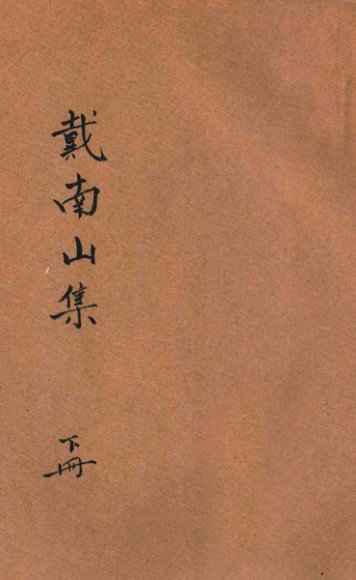 戴南山集
下冊